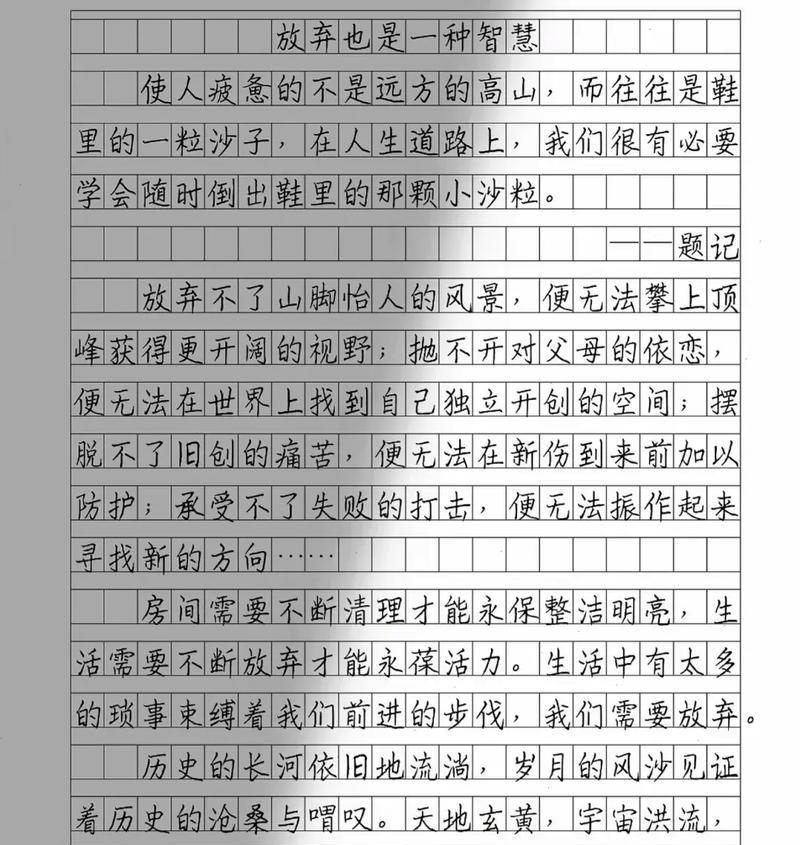 放弃也是一种智慧
使人疲惫的不是远方的高山，而往往是鞋
里的一粒沙子，在人生道路上，我们很有必要
学会随时倒出鞋里的那颗小沙粒。
——题记
放弃不了山脚怡人的风景，便无法攀上顶
峰获得更开阔的视野；抛不开对父母的依恋，
便无法在世界上找到自己独立开创的空间；摆
脱不了旧创的痛苦，便无法在新伤到来前加以
防护；承受不了失败的打击，便无法振作起来
寻找新的方向……
房间需要不断清理才能永保整洁明亮，生
活需要不断放弃才能永葆活力。生活中有太多
的琐事束缚着我们前进的步伐，我们需要放弃。
历史的长河依旧地流淌，岁月的风沙见证
着历史的沧桑与喟叹。天地玄黄，宇宙洪流，